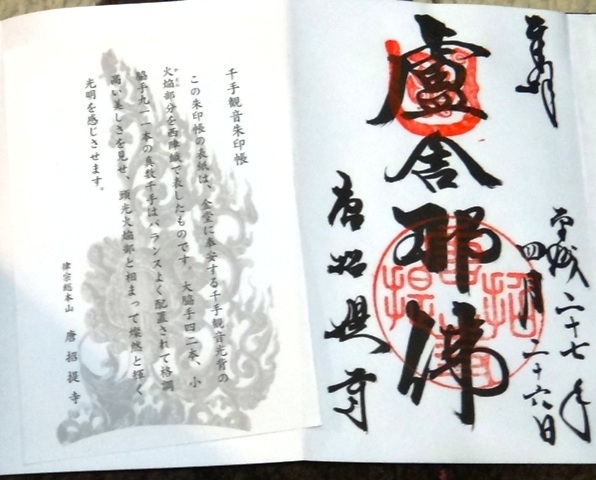 奉拝
平成二十七年
四月二十六日
盧舎那佛
唐招提寺
千手観音朱印帳
この朱印帳の表紙は、金堂に奉安する千手観音光背の
火焔部分を西陣織で表したものです。大脇手四二本、小
脇手九一一本の真数千手はバランスよく配置されて格調
高い美しさを見せ、頭光火焔部と相まって燦然と輝く
光明を感じさせます。
律宗総本山 唐招提寺